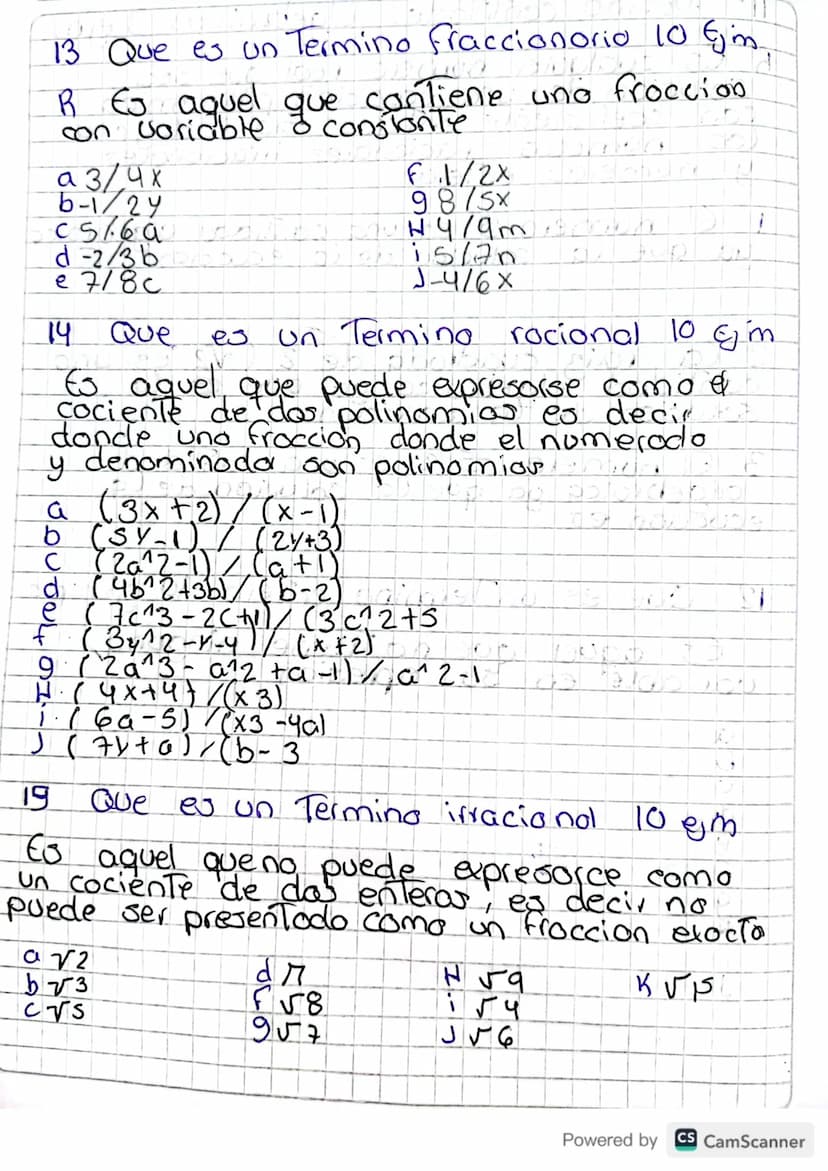 13 Que es un Termino fraccionario 10 Ejm
R Es aquel que contiene una fraccion
con variable o constante
a 3/4x
b -1/2y
c 5/6a
d -2/3b
e 7/8c
f 1/2x
g 8/5x
H 4/9m
i 5/7n
J -4/6x
14 Que es un Termino racional 10 Ejm
Es aquel que puede expresarse como el
cociente de dos polinomios es decir
donde una fraccion donde el numerado
y denominador son polinomios
a (3x+2)/(x-1)
b (5y-1)/(2y+3)
c (2a^2-1)/(a+1)
d (4b^2+3b)/(b-2)
e (7c^3-2c+1)/(3c^2+5
f (3y^2-y-4)/(x+2)
g (2a^3-a^2+a-1)/a^2-1
H. (4x+4)/(x3)
i. (6a-5)/(x3-4a)
J (7y+a)/(b-3
19 Que es un Termino irracional 10 ejm
Es aquel que no puede expresarce como
un cociente de dos enteros, es decir no
puede ser presentado como un fraccion exacta
a √2
b √3
c √5
d π
f √8
g √7
H √9
i √4
J √6
K √15
Powered by CS CamScanner